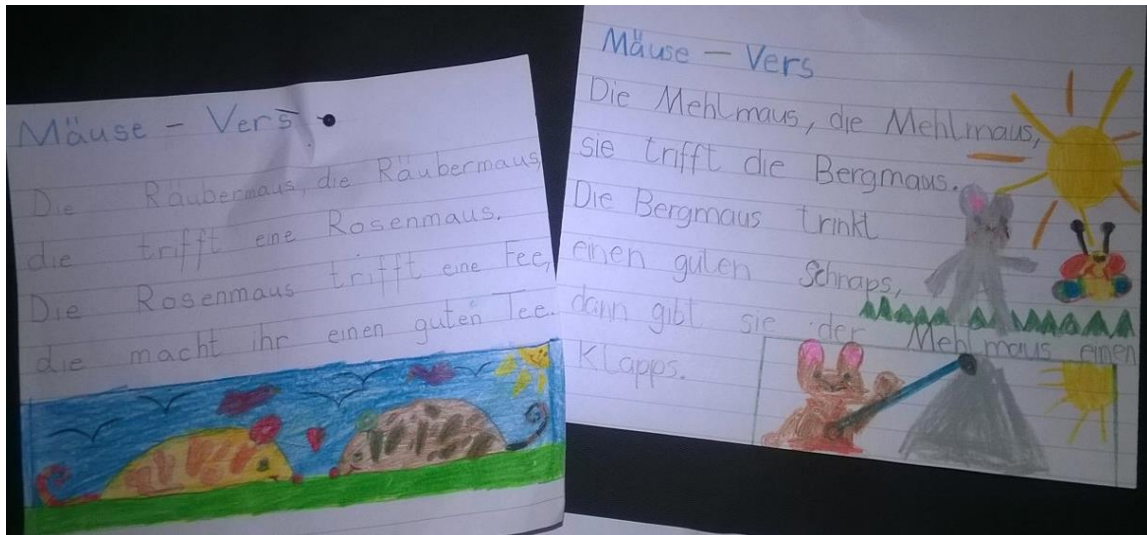 Mäuse - Vers
Die Räubermaus, die Räubermaus,
die trifft eine Rosenmaus.
Die Rosenmaus trifft eine Fee,
die macht ihr einen guten Tee.
Mäuse - Vers
Die Mehlmaus, die Mehlmaus,
sie trifft die Bergmaus.
Die Bergmaus trinkt
einen guten Schnaps,
dann gibt sie der Mehlmaus einen
Klapps.